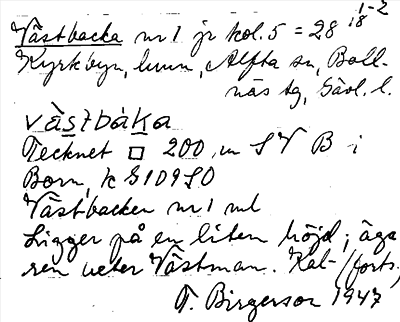 1-2
18
Västbacka nr 1 jr kol. 5 = 28
Kyrkbyn, hmn, Alfta sn, Boll-
näs tg, Gävl. l.
västbáka
Tecknet □ 200 m SV B i
Born, k S109SO
Västbacken nr 1 ml
Ligger på en liten höjd; äga-
ren heter Västman. Kal- (forts.
T. Birgerson 1947